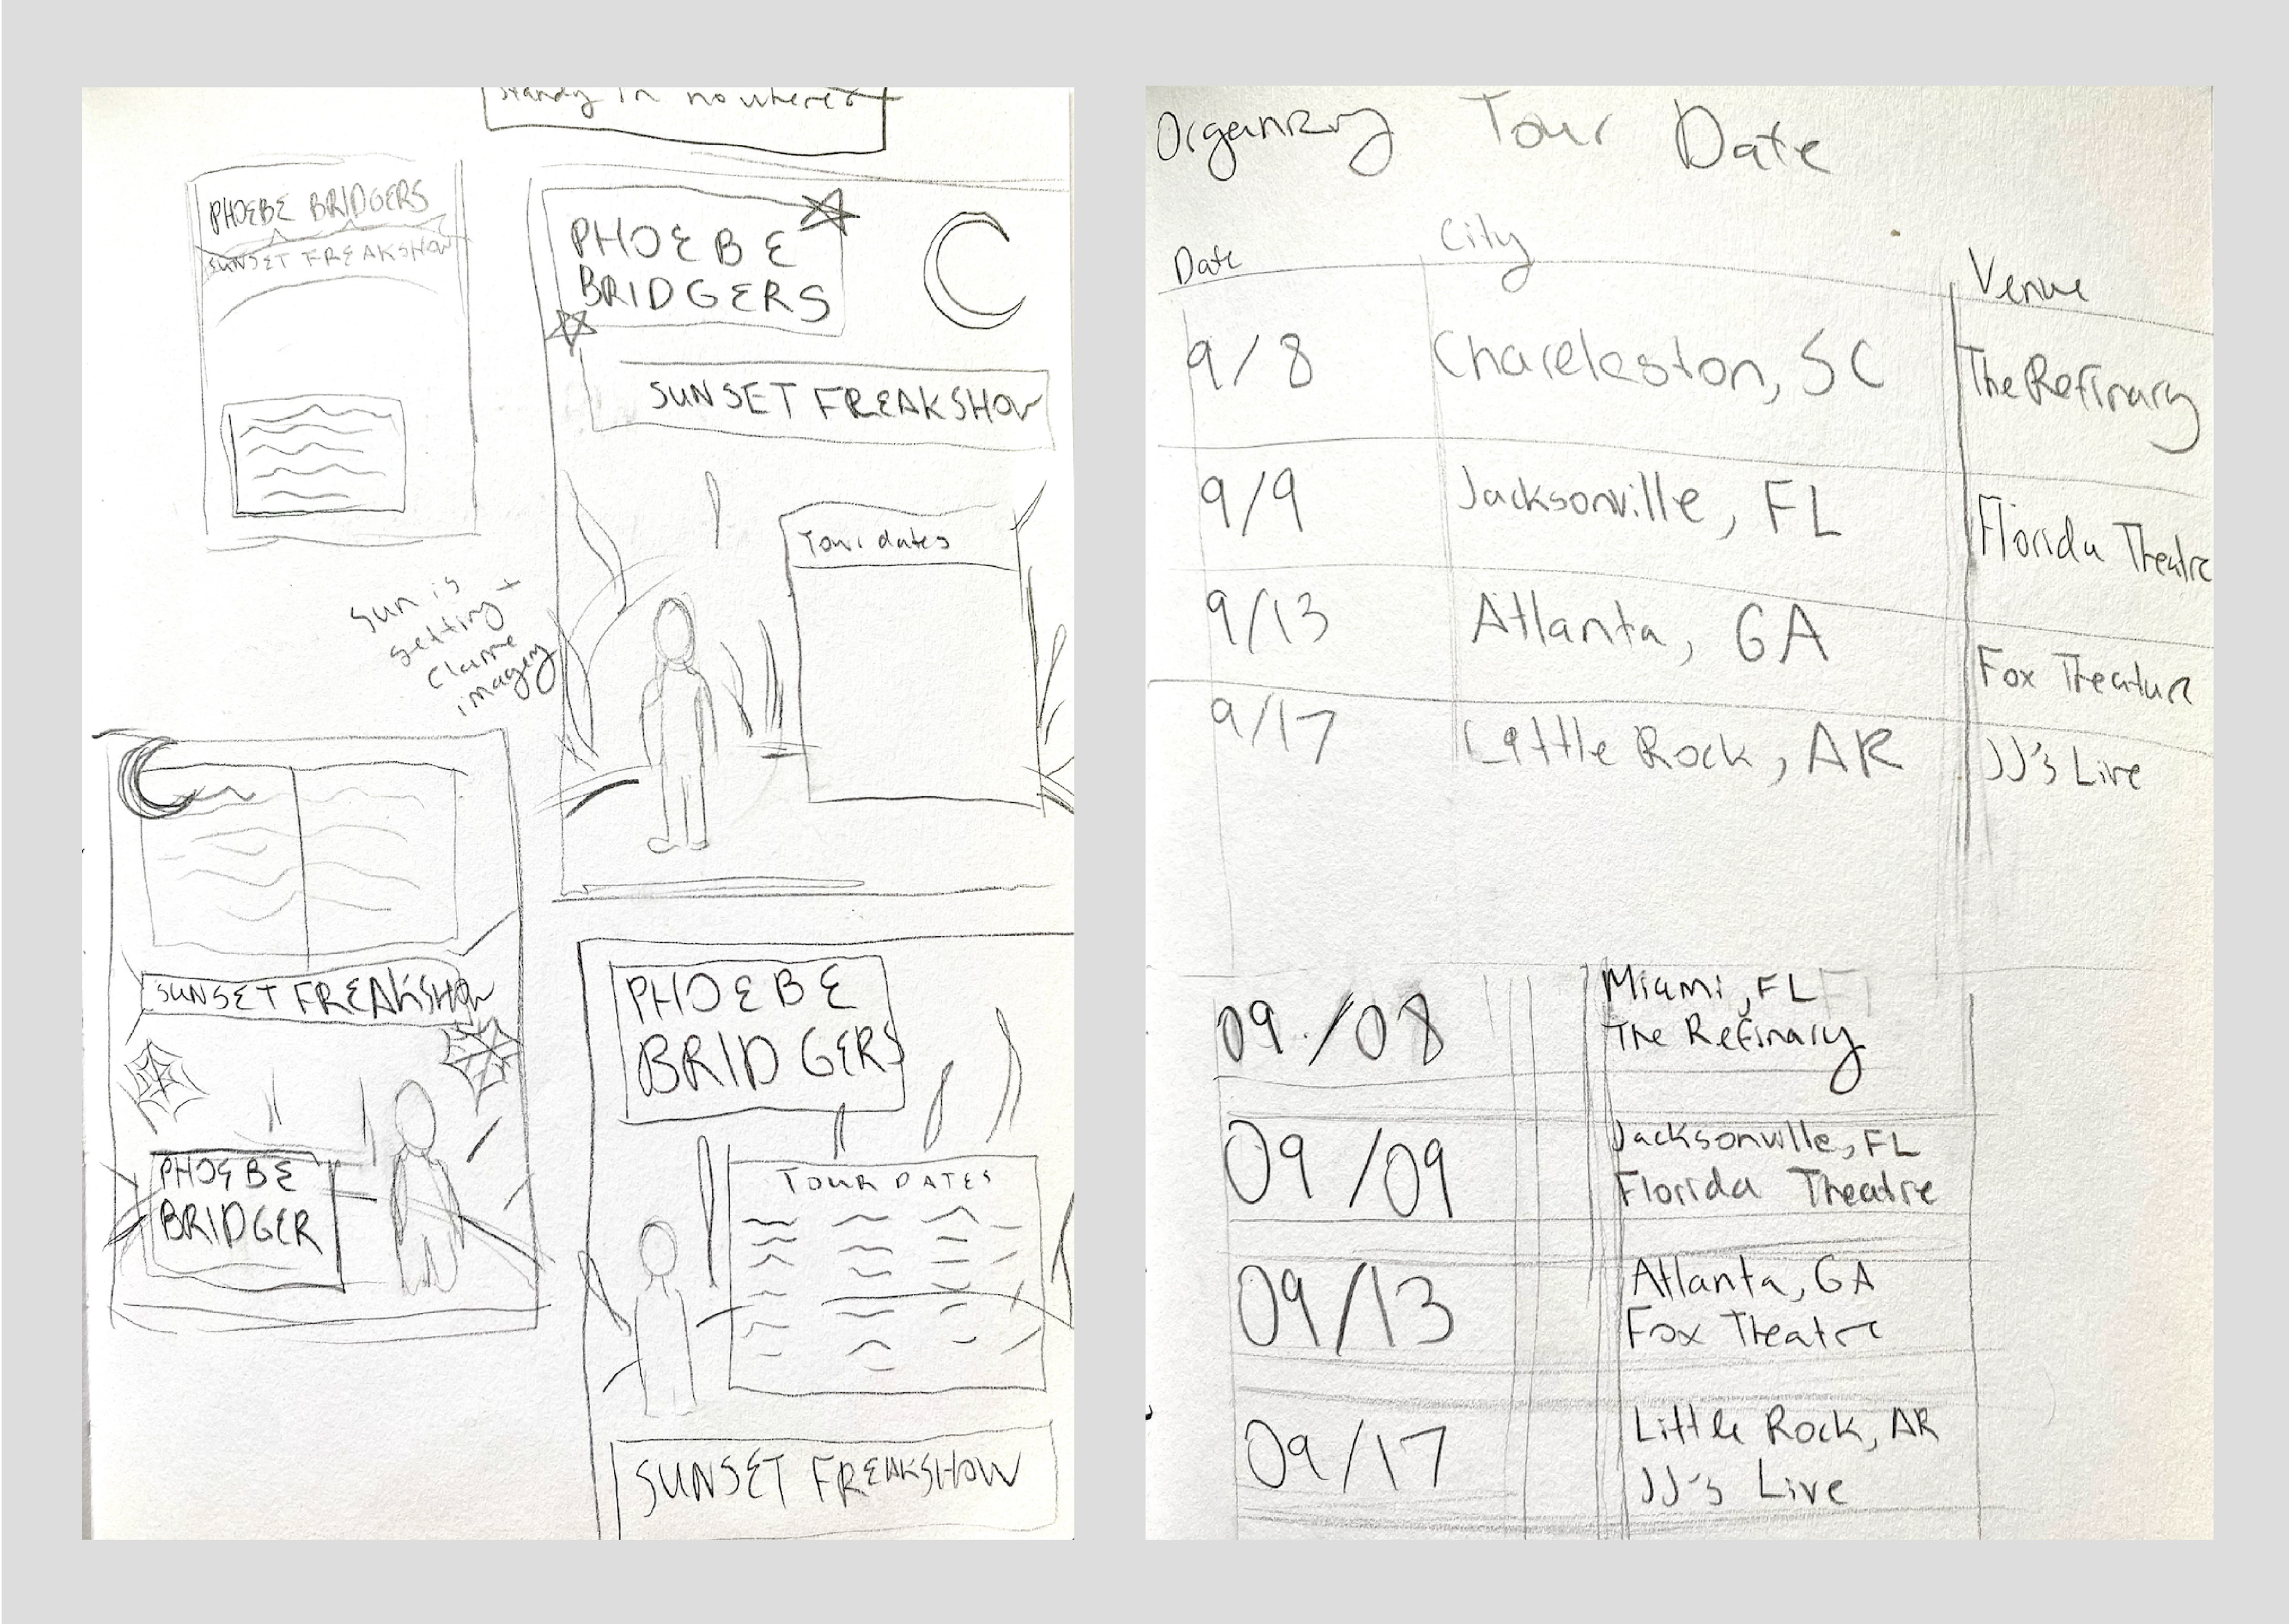 standy in nowhere
PHOEBE BRIDGERS
SUNSET FREAKSHOW
PHOEBE
BRIDGERS
SUNSET FREAKSHOW
Tour dates
Sun is
setting +
imagery
SUNSET FREAKSHOW
PHOEBE
BRIDGER
PHOEBE
BRIDGERS
TOUR DATES
SUNSET FREAKSHOW
Organizing Tour Date
Date City Venue
9/8 Chareleston, SC The Refinary
9/9 Jacksonville, FL Florida Theatre
9/13 Atlanta, GA Fox Theature
9/17 Little Rock, AR JJ's Live
09/08 Miami, FL
The Refinary
09/09 Jacksonville, FL
Florida Theatre
09/13 Atlanta, GA
Fox Theatre
09/17 Little Rock, AR
JJ's Live